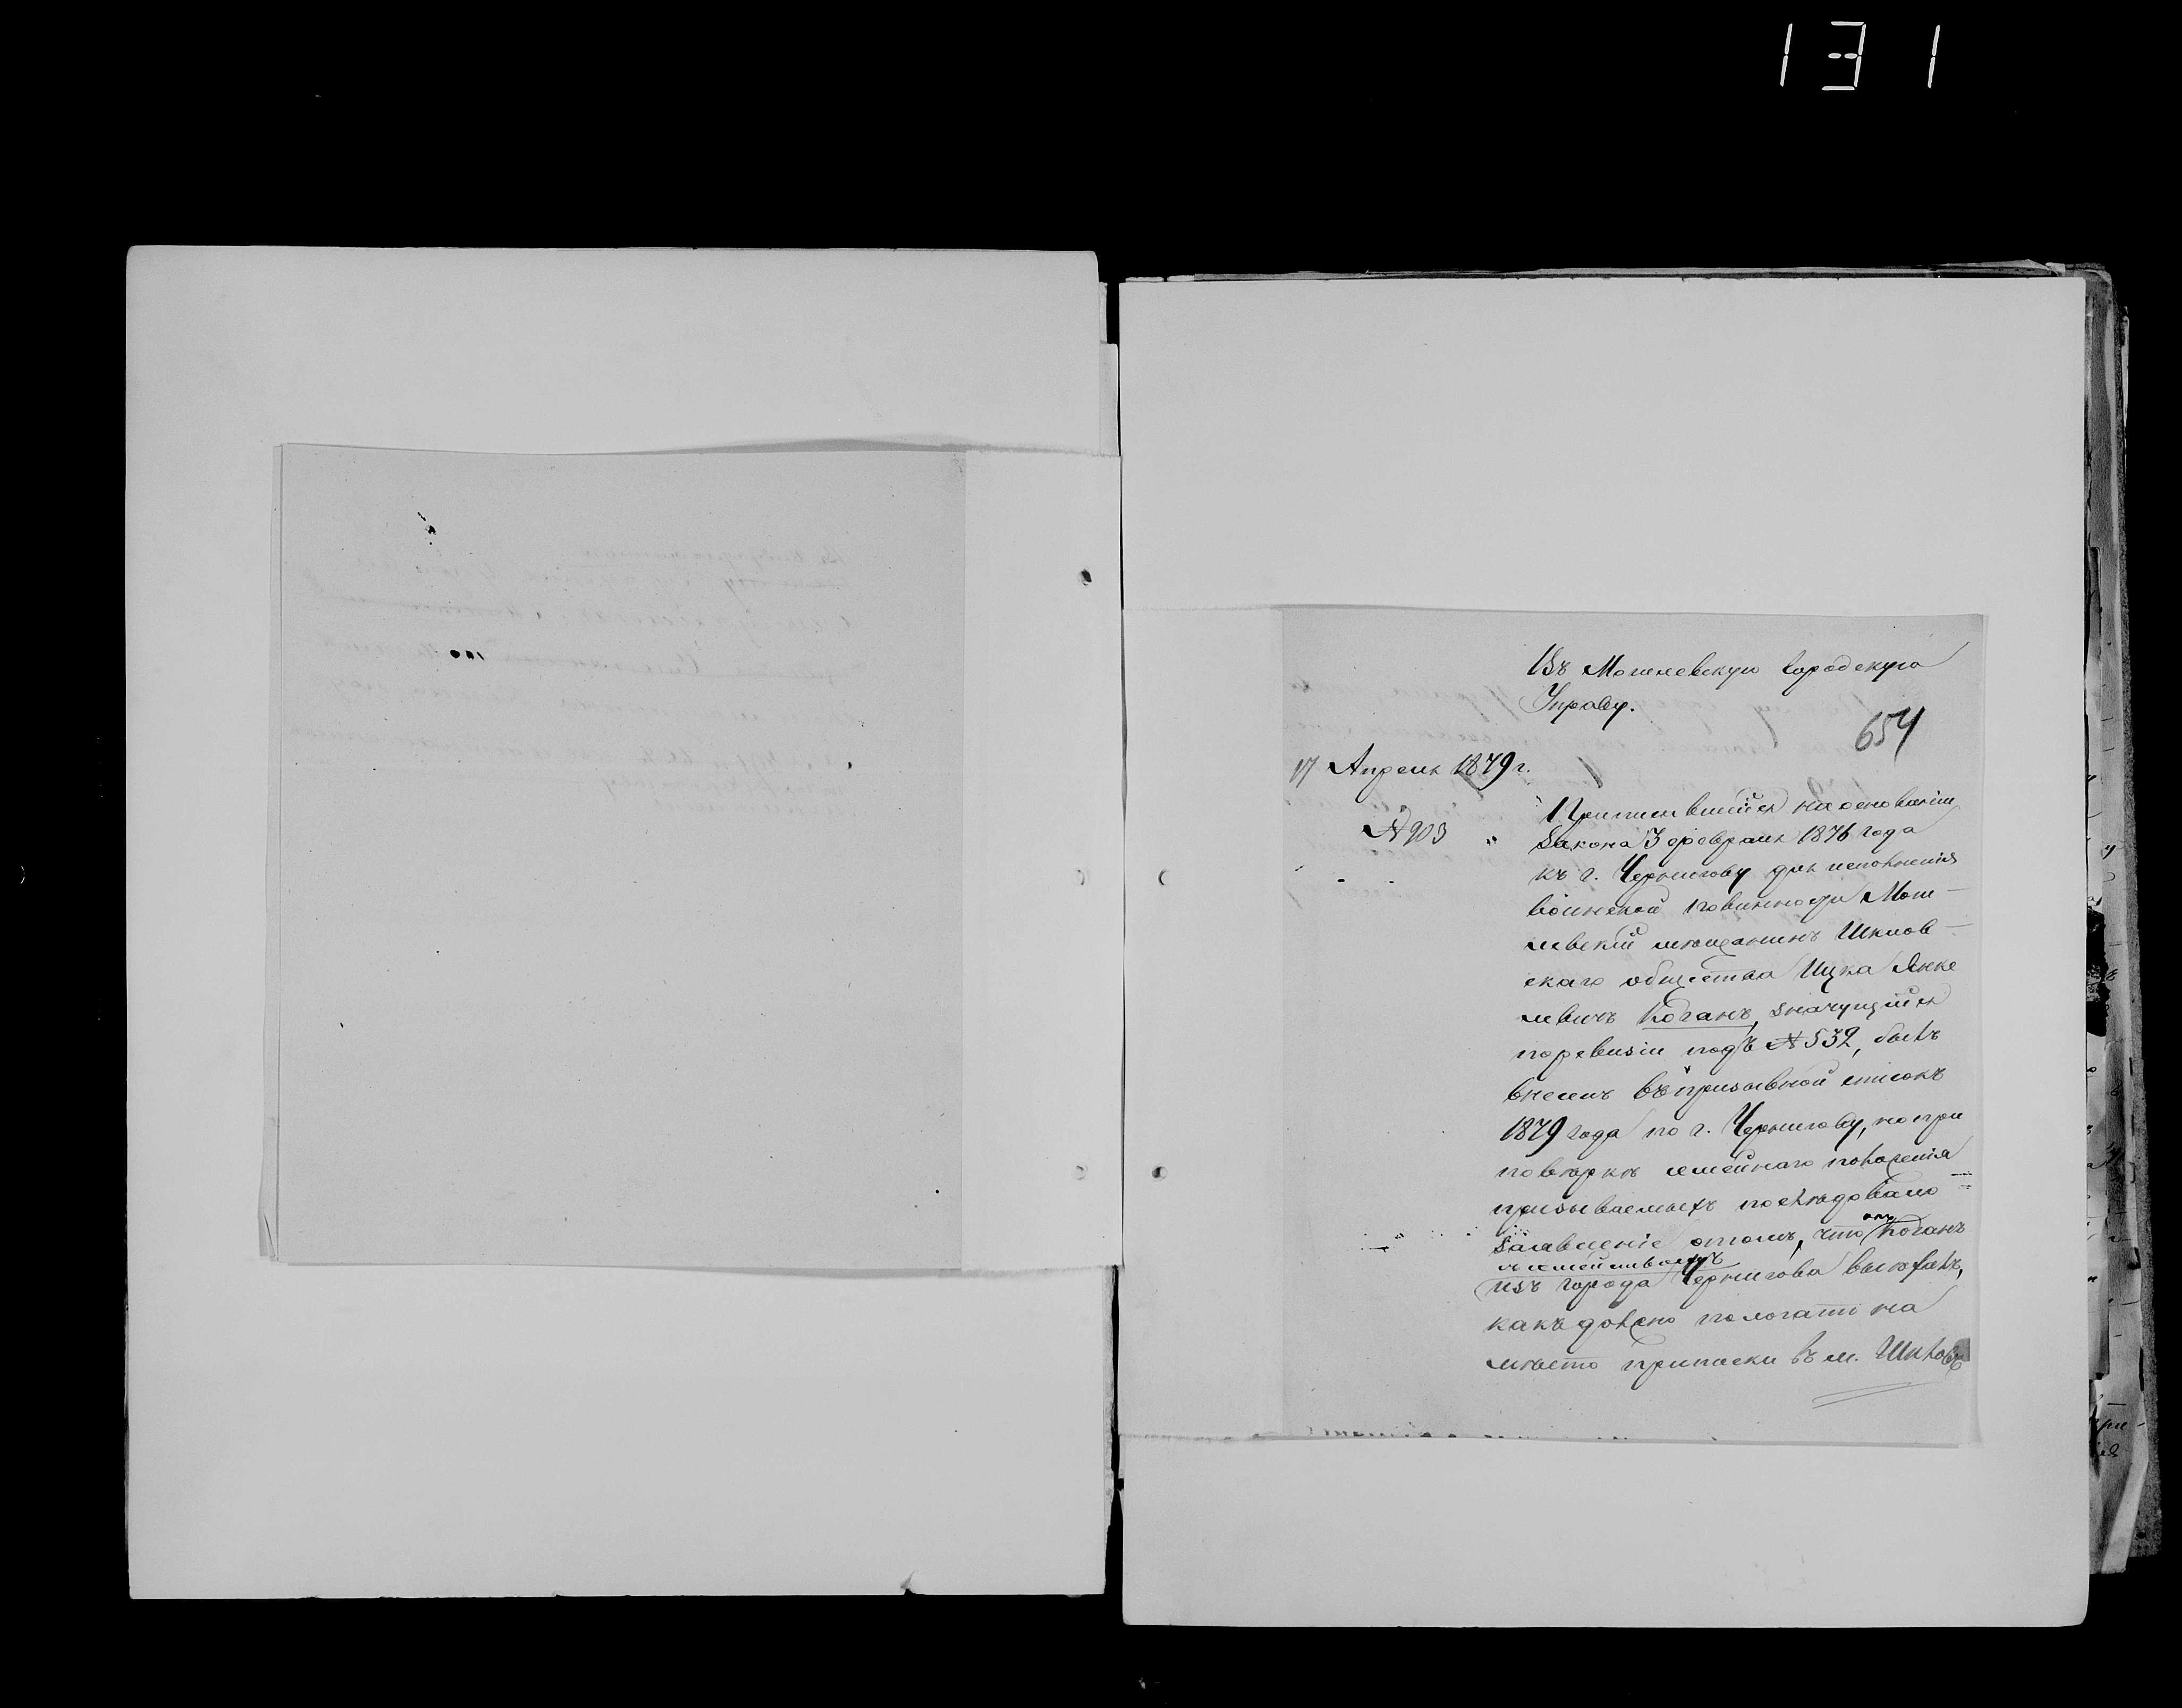 131
Въ Могилевскую городскую
Управу.
654
17 Апрѣля 1879 г.
№ 903
Приписавшійся на основаніи
закона 3 февраля 1876 года
къ г. Чернигову для исполненія
воинской повинности Моги-
левскій мѣщанинъ Шклов-
скаго общества Ицка Янке
левичъ Коганъ, значущійся
по ревизіи подъ № 532, былъ
внесенъ въ призывной списокъ
1879 года по г. Чернигову, но при
повѣркѣ семейнаго положенія
призываемыхъ послѣдовало
заявленіе о томъ, что онъ Коганъ
съ семействомъ
изъ города Чернигова выѣхалъ,
какъ должно полагать на
мѣсто приписки въ м. Шкловъ